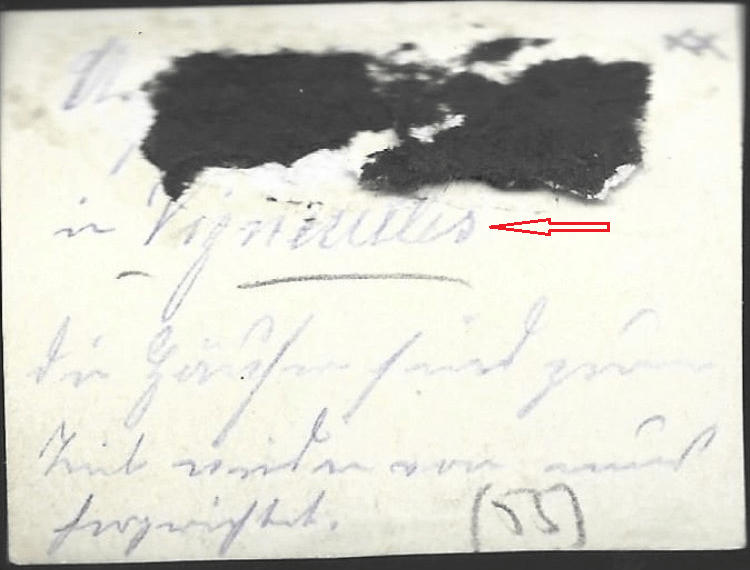 xx
in Vigneulles
die Häuser sind zum
Teil wieder von uns
hergerichtet. (53)